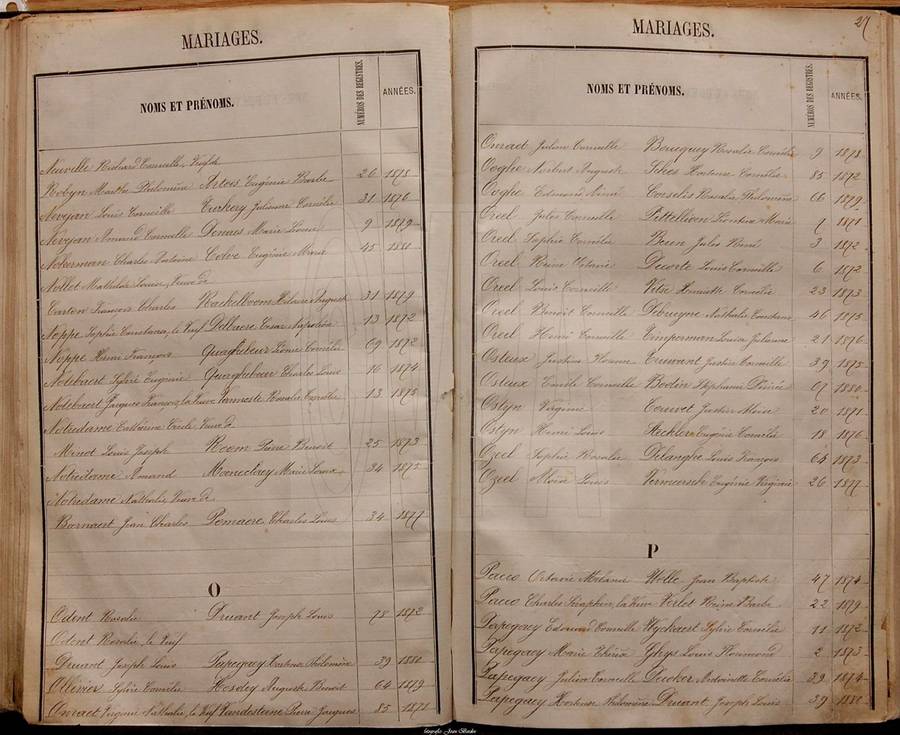 MARIAGES.
NOMS ET PRÉNOMS.
NUMÉROS DES REGISTRES.
ANNÉES.
Neuville Richard Corneille
Robyn Marthe Philomène Artois Eugénie Barbe 26 1878
Nevejan Louis Corneille Turkery Julienne Cornélie 31 1876
Nevejan Amand Corneille Denaes Marie Louise 9 1879
Nokerman Charles Antoine Colve Eugénie Marie 45 1880
Nollet Mathilde Louise, Veuve de
Carton François Charles Rachelboom Hilaire August 31 1879
Noppe Sophie Constance, le Veuf Delbaere César Napoléon 13 1872
Noppe Henri François Quaghebeur Léonie Cornélie 69 1872
Notebaert Sylvie Eugénie Quaghebeur Charles Louis 16 1874
Notebaert Jacques François, la Veuve Vanneste Rosalie Cornélie 13 1875
Notredame Catherine Cécile Veuve de
Minot Louis Joseph Room Pierre Benoit 25 1873
Notredame Amand Marie Louise 34 1875
Notredame Nathalie Veuve de
Barnaert Jean Charles Demaere Charles Louis 34 1877
O
Odent Rosalie Druant Joseph Louis 78 1872
Odent Rosalie le Veuf
Druant Joseph Louis Papegaey Hortense Philomène 39 1880
Ollivier Sylvie Cornélie Hosdey Auguste Benoit 64 1879
Omraet Virginie Nathalie, le Veuf Vandesteene Pierre Jacques 85 1871
MARIAGES.
27
NOMS ET PRÉNOMS.
NUMÉROS DES REGISTRES.
ANNÉES.
Omraet Julien Corneille Beucquey Rosalie Cornélie 9 1878
Ooghe Norbert Auguste Hortense Cornélie 85 1872
Ooghe Edmond Aimé Corselis Rosalie Philomène 66 1879
Oreel Jules Corneille Pettelioen Léontine Marie 7 1871
Oreel Sophie Cornélie Beun Jules René 3 1872
Oreel Reine Victorie Decorte Louis Corneille 6 1872
Oreel Louis Corneille Henriette Cornélie 23 1873
Oreel Benoit Corneille Debruyne Nathalie Constance 46 1875
Oreel Henri Corneille Timperman Louise Julienne 21 1876
Osteux Justine Corneille 39 1875
Osteux Emile Corneille Bodein Stéphanie Désirée 67 1880
Ostyn Virginie Couvet Justin Aloïse 20 1871
Ostyn Henri Louis Steckler Eugénie Cornélie 18 1876
Ozeel Sophie Rosalie Delanghe Louis François 64 1873
Ozeel Aloïs Louis Vermeersch Eugénie Virginie 26 1877
P
Pacco Octavie Mélanie Holle Jean Baptiste 47 1874
Pacco Charles Séraphin, la Veuve Verlet Reine Barbe 22 1879
Papegaey Edouard Corneille Wyckaert Sylvie Cornélie 11 1872
Papegaey Marie Thérèse Ghys Louis Raimond 2 1873
Papegaey Julien Corneille Decker Antoinette Cornélie 39 1874
Papegaey Hortense Philomène Druant Joseph Louis 39 1880